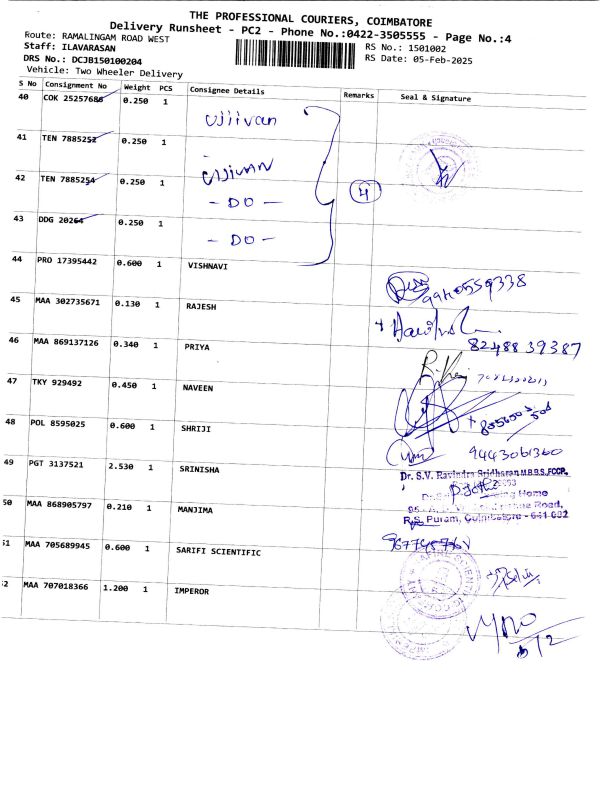 THE PROFESSIONAL COURIERS, COIMBATORE
Delivery Runsheet - PC2 - Phone No.:0422-3505555 - Page No.:4
Route: RAMALINGAM ROAD WEST
RS No.: 1501002
Staff: ILAVARASAN
RS Date: 05-Feb-2025
DRS No.: DCJB150100204
Vehicle: Two Wheeler Delivery
S No Consignment No Weight PCS Consignee Details Remarks Seal & Signature
40 COK 25257686 0.250 1 Ujjivan
41 TEN 7885252 0.250 1 Ujjivan
42 TEN 7885254 0.250 1 - DO - 4
43 DDG 20264 0.250 1 - DO -
44 PRO 17395442 0.600 1 VISHNAVI
45 MAA 302735671 0.130 1 RAJESH
46 MAA 869137126 0.340 1 PRIYA 8248839387
47 TKY 929492 0.450 1 NAVEEN
48 POL 8595025 0.600 1 SHRIJI
9443061360
49 PGT 3137521 2.530 1 SRINISHA Dr. S.V. Ravindra Sridharan M.B.B.S.,FCCP.
Home
50 MAA 868905797 0.210 1 MANJIMA Road,
R.S. Puram, Coimbatore - 641 002
51 MAA 705689945 0.600 1 SARIFI SCIENTIFIC
52 MAA 707018366 1.200 1 IMPEROR